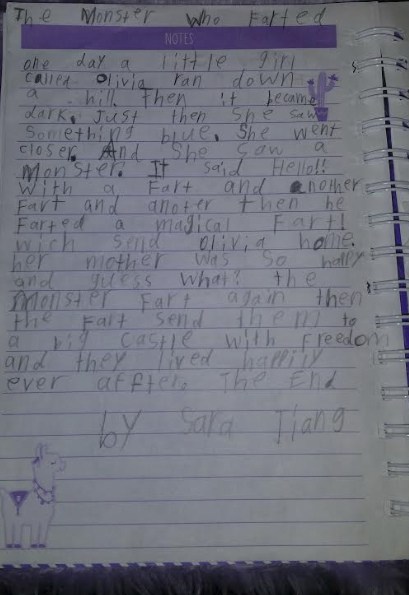 The Monster Who Farted
NOTES
one day a little girl
called Olivia ran down
a hill Then it became
dark. Just then She saw
Something blue. She went
closer. And She saw a
Monster. It said Hello!!
With a Fart and another
Fart and anoter then he
Farted a magical Fart!
wich send Olivia home.
her mother was so happy
and guess what? the
Monster Fart again then
the Fart send them to
a big castle with Freedom
and they lived happily
ever affter. The End
by Sara Jiang